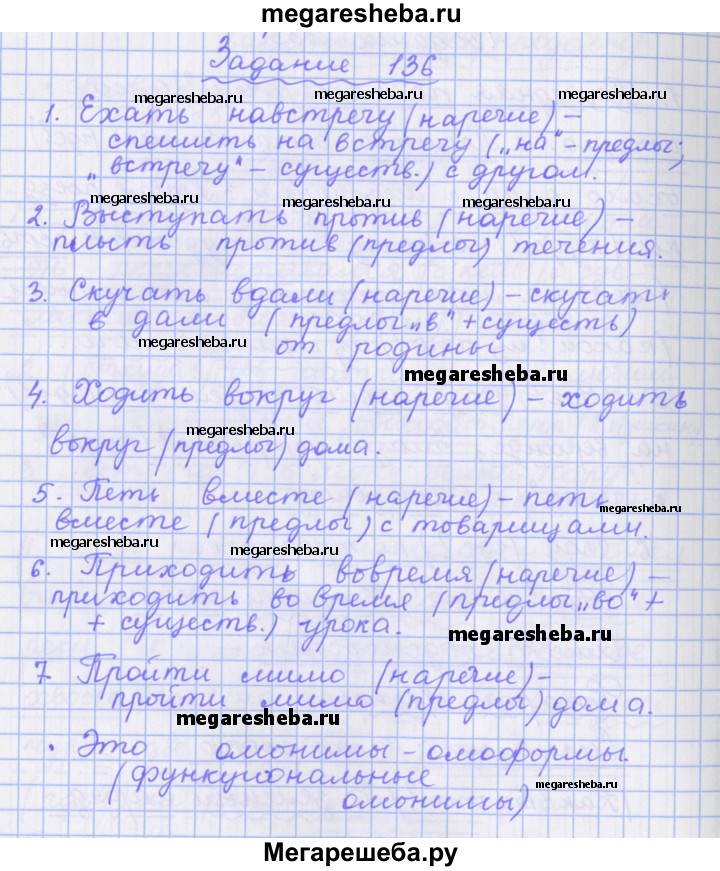 megaresheba.ru
Задание 136
megaresheba.ru megaresheba.ru megaresheba.ru
1. Ехать навстречу (наречие) –
спешить на встречу („на“ – предлог;
„встречу“ – существ.) с другом.
megaresheba.ru megaresheba.ru
2. Выступать против (наречие) –
плыть против (предлог) течения.
3. Скучать вдали (наречие) – скучать
в дали (предлог „в“ + существ)
megaresheba.ru от родины
megaresheba.ru
4. Ходить вокруг (наречие) – ходить
megaresheba.ru
вокруг (предлог) дома.
5. Петь вместе (наречие) – петь
megaresheba.ru
вместе (предлог) с товарищами.
megaresheba.ru megaresheba.ru
6. Приходить вовремя (наречие) –
приходить во время (предлог „во“ +
+ существ.) урока.
megaresheba.ru
7 Пройти мимо (наречие) –
пройти мимо (предлог) дома.
megaresheba.ru
· Это омонимы – омоформы.
(функциональные megaresheba.ru
омонимы)
Мегарешеба.ру